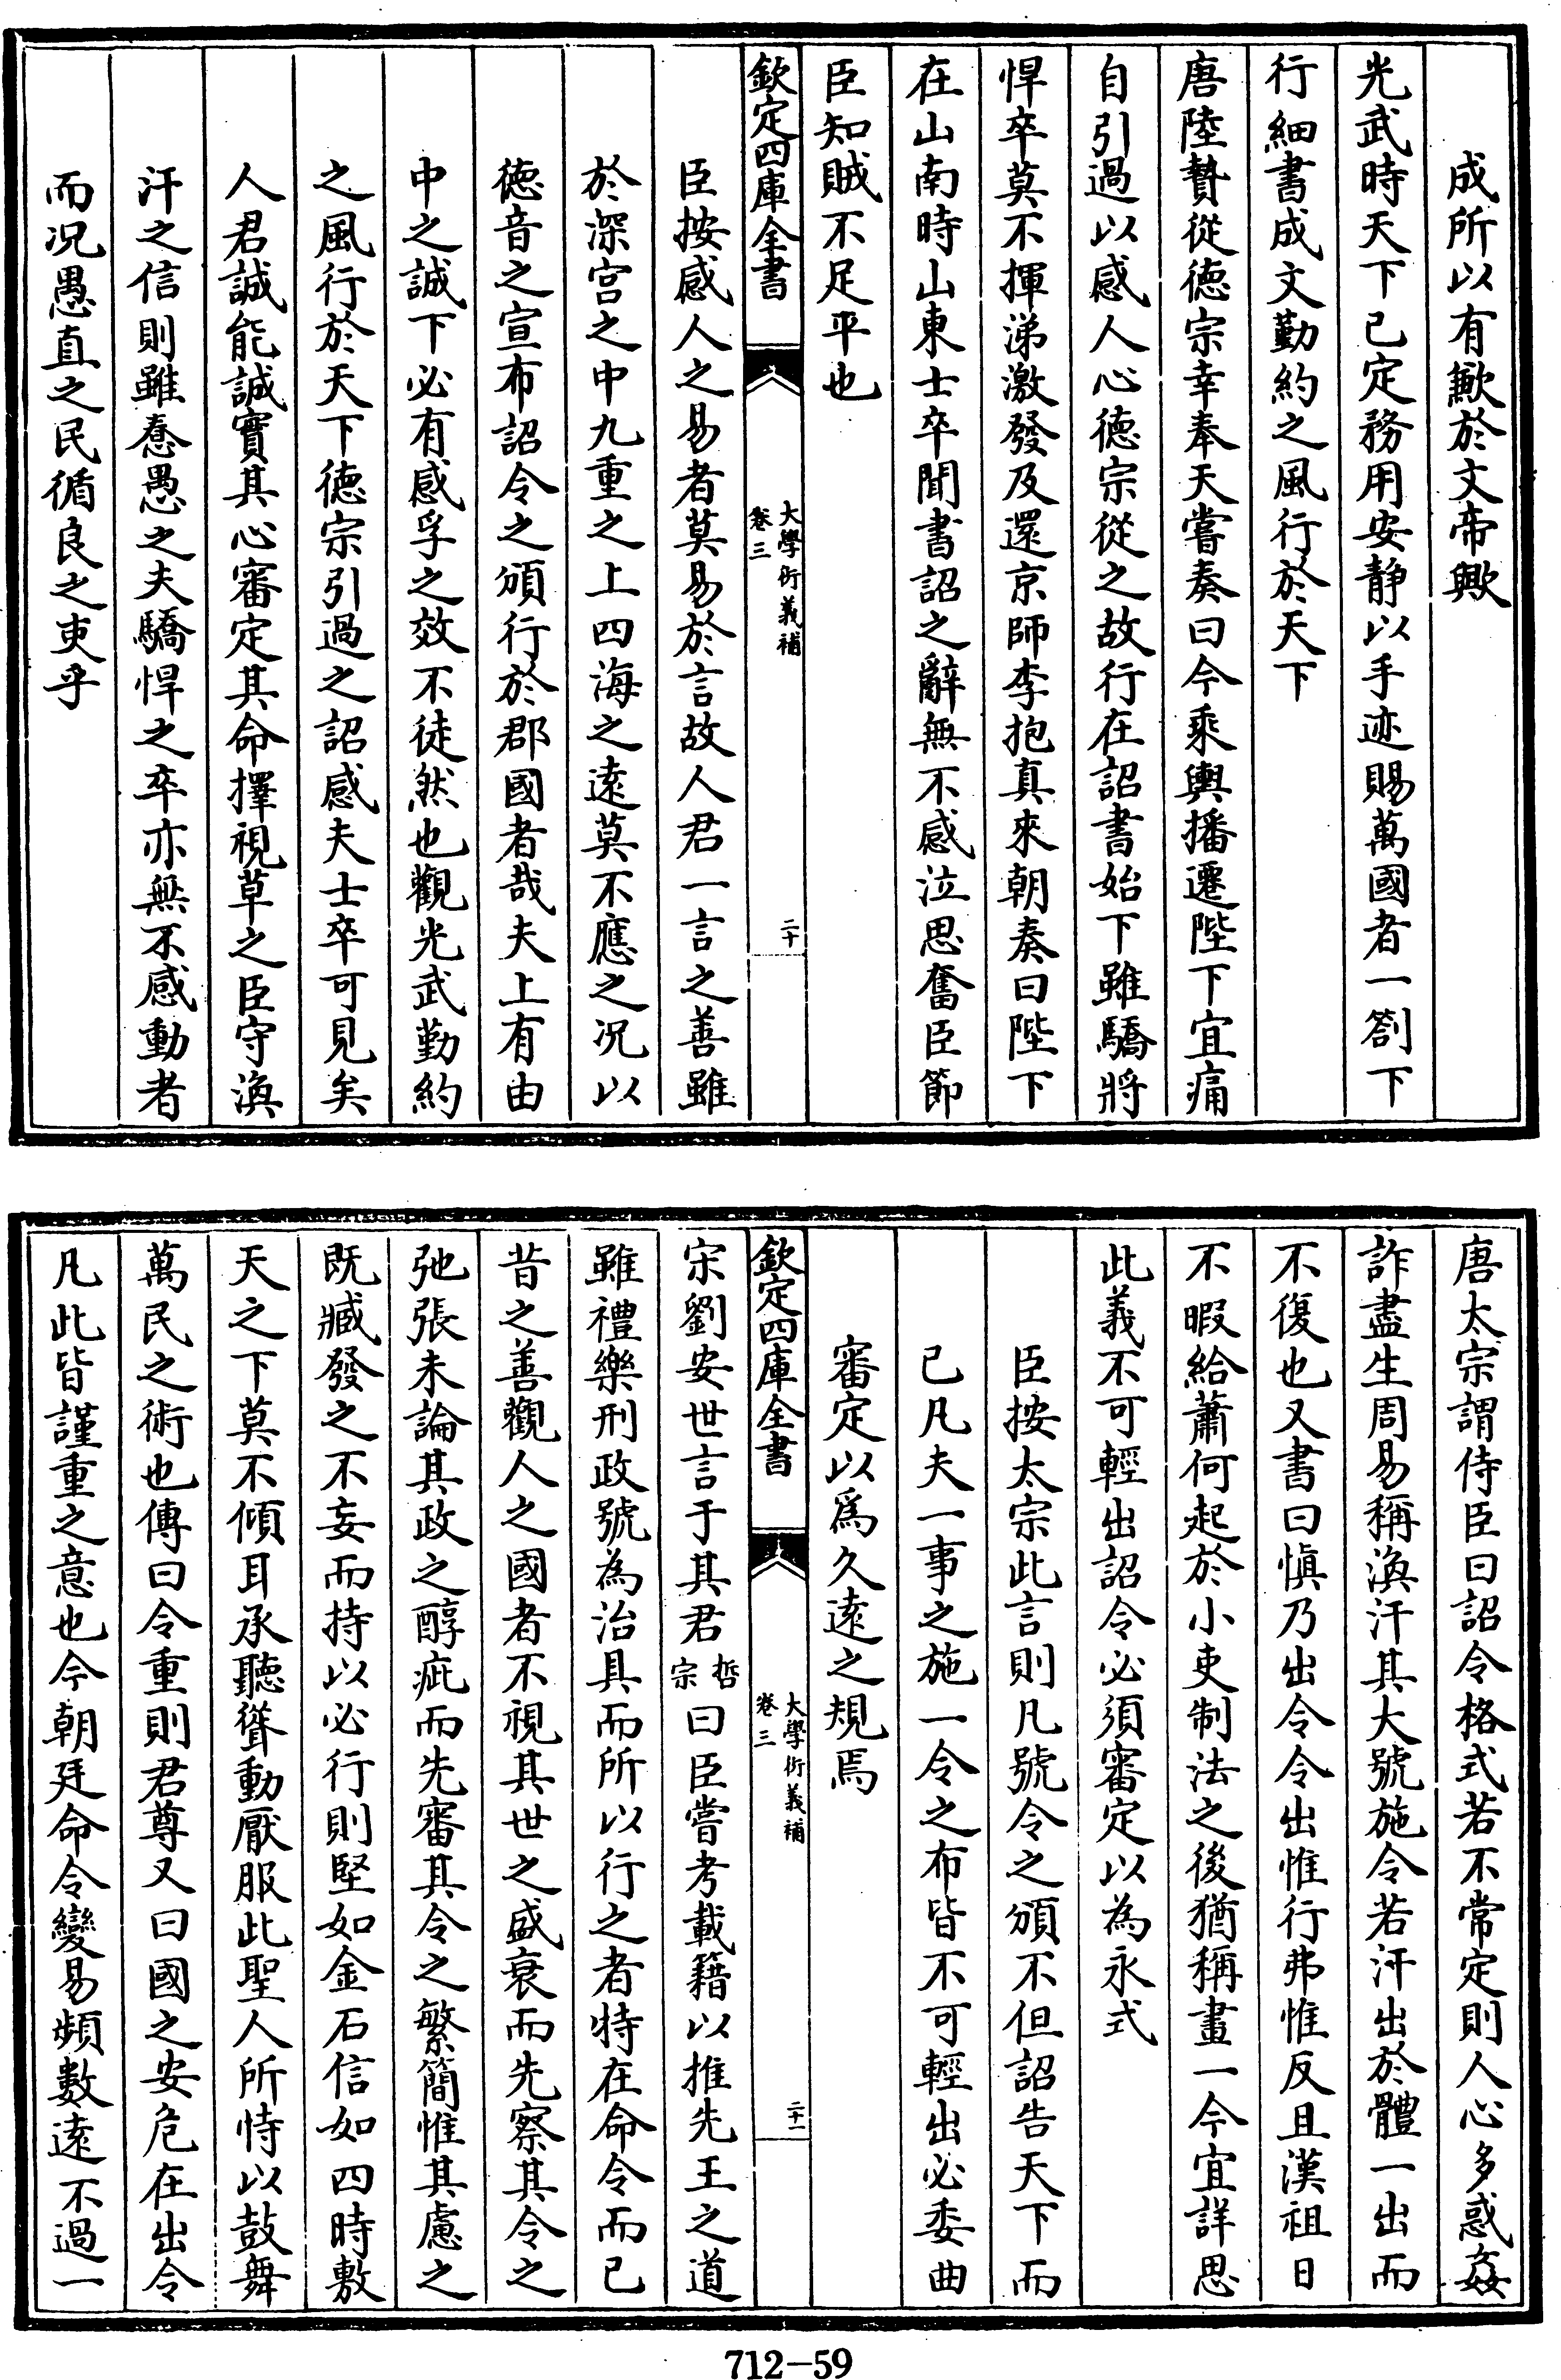 成所以有歉於文帝歟
光武時天下已定務用安静以手迹賜萬國者一劄下
行細書成文勤約之風行於天下
唐陸贄從徳宗幸奉天嘗奏曰今乘輿播遷陛下宜痛
自引過以感人心徳宗從之故行在詔書始下雖驕將
悍卒莫不揮涕激發及還京師李抱真來朝奏曰陛下
在山南時山東士卒聞書詔之辭無不感泣思奮臣節
臣知賊不足平也
欽定四庫全書
大學衍義補
卷三
二十
臣按感人之易者莫易於言故人君一言之善雖
於深宫之中九重之上四海之逺莫不應之况以
徳音之宣布詔令之頒行於郡國者哉夫上有由
中之誠下必有感孚之效不徒然也觀光武勤約
之風行於天下徳宗引過之詔感夫士卒可見矣
人君誠能誠實其心審定其命擇視草之臣守渙
汗之信則雖惷愚之夫驕悍之卒亦無不感動者
而况愚直之民循良之吏乎
唐太宗謂侍臣曰詔令格式若不常定則人心多惑姦
詐盡生周易稱渙汗其大號施令若汗出於體一出而
不復也又書曰慎乃出令令出惟行弗惟反且漢祖日
不暇給蕭何起於小吏制法之後猶稱畫一今宜詳思
此義不可輕出詔令必須審定以為永式
臣按太宗此言則凡號令之頒不但詔告天下而
已凡夫一事之施一令之布皆不可輕出必委曲
審定以爲久逺之規焉
欽定四庫全書
大學衍義補
卷三
二十一
宋劉安世言于其君哲宗曰臣嘗考載籍以推先王之道
雖禮樂刑政號為治具而所以行之者特在命令而已
昔之善觀人之國者不視其世之盛衰而先察其令之
弛張未論其政之醇疵而先審其令之繁簡惟其慮之
既臧發之不妄而持以必行則堅如金石信如四時敷
天之下莫不傾耳承聽聳動厭服此聖人所恃以鼓舞
萬民之術也傳曰令重則君尊又曰國之安危在出令
凡此皆謹重之意也今朝廷命令變易頻數逺不過一
712-59